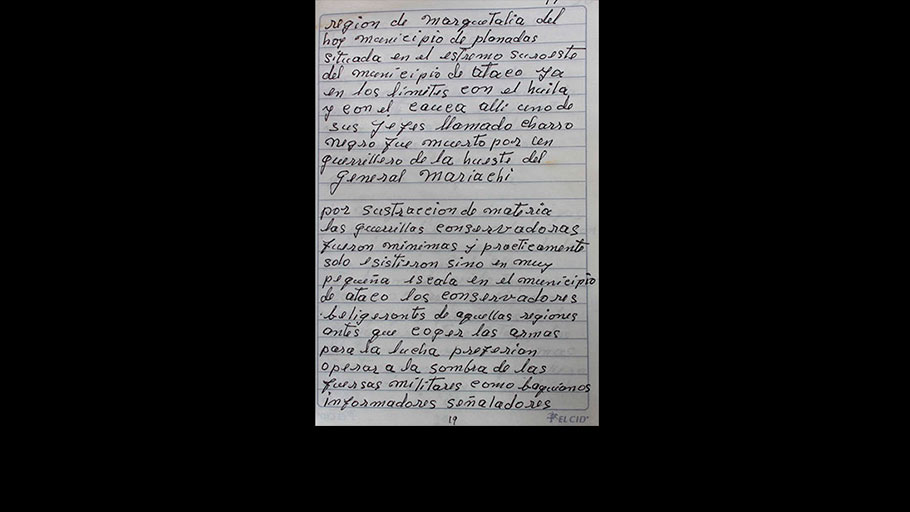 region de marquetalia del
hoy municipio de planadas
situada en el estremo suroeste
del municipio de ataco ya
en los limites con el huila
y con el cauca alli uno de
sus jefes llamado charro
negro fue muerto por un
guerrillero de la hueste del
general mariachi
por sustraccion de materia
las guerrillas conservadoras
fueron minimas y practicamente
solo esistieron sino en muy
pequeña escala en el municipio
de ataco los conservadores
beligerantes de aquellas regiones
antes que coger las armas
para la lucha preferian
operar a la sombra de las
fuersas militares como baquianos
informadores señaladores
19
EL CID